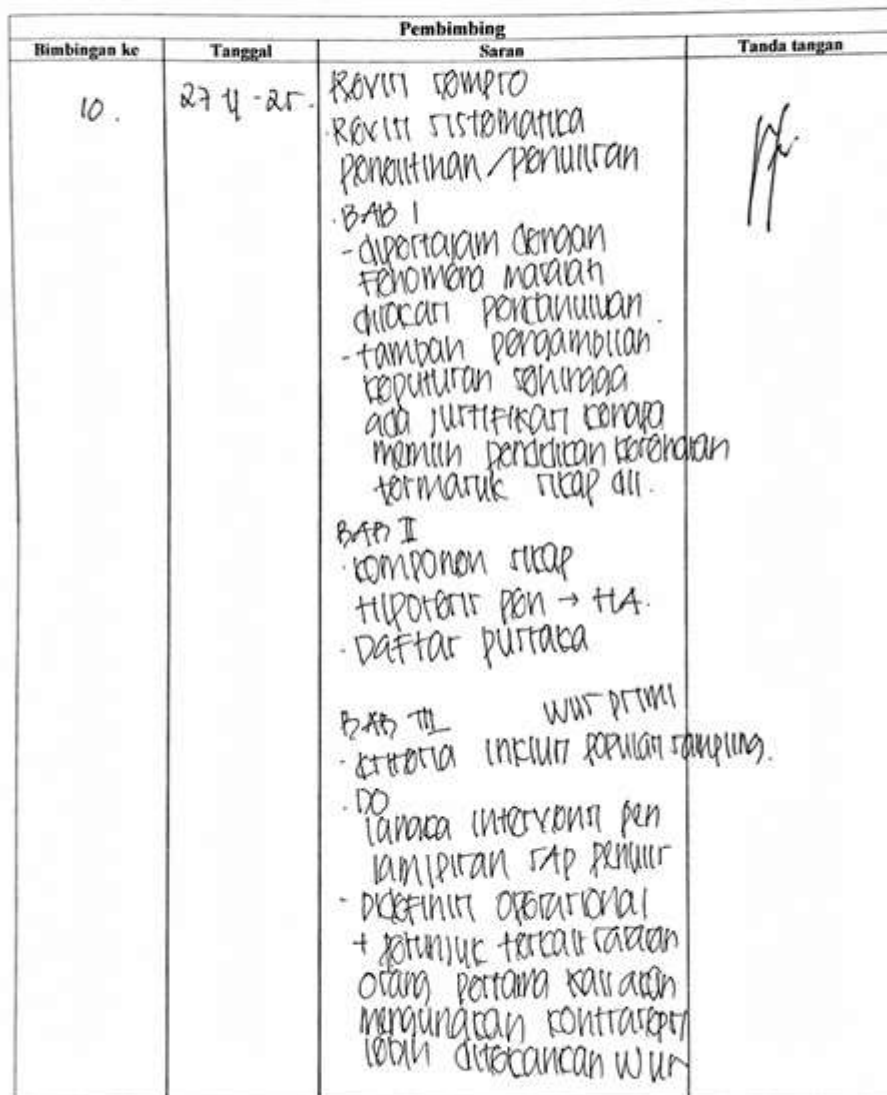 Pembimbing
Bimbingan ke Tanggal Saran Tanda tangan
10. 27 4 -25. Revisi sempro
.Revisi sistematika
penelitihan/penulisan
.BAB I
-dipertajam dengan
Fenomena masalah
dilocasi
-tambah pengambilan
keputusan sehingga
ada justifikasi kenapa
memilih pendidikan kesehatan
termasuk sikap dll.
BAB II
.komponen sikap
Hipotesis pen → HA.
.Daftar pustaka
BAB III WUS primi
.kriteria inklusi populasi sampling.
.DO
intervensi pen
lampiran SAP penulis
- Didefinisi operasional
+ petunjuk terkait sasaran
orang pertama kali akan
mengunakan kontrasepsi
lebih ditekancan WUS